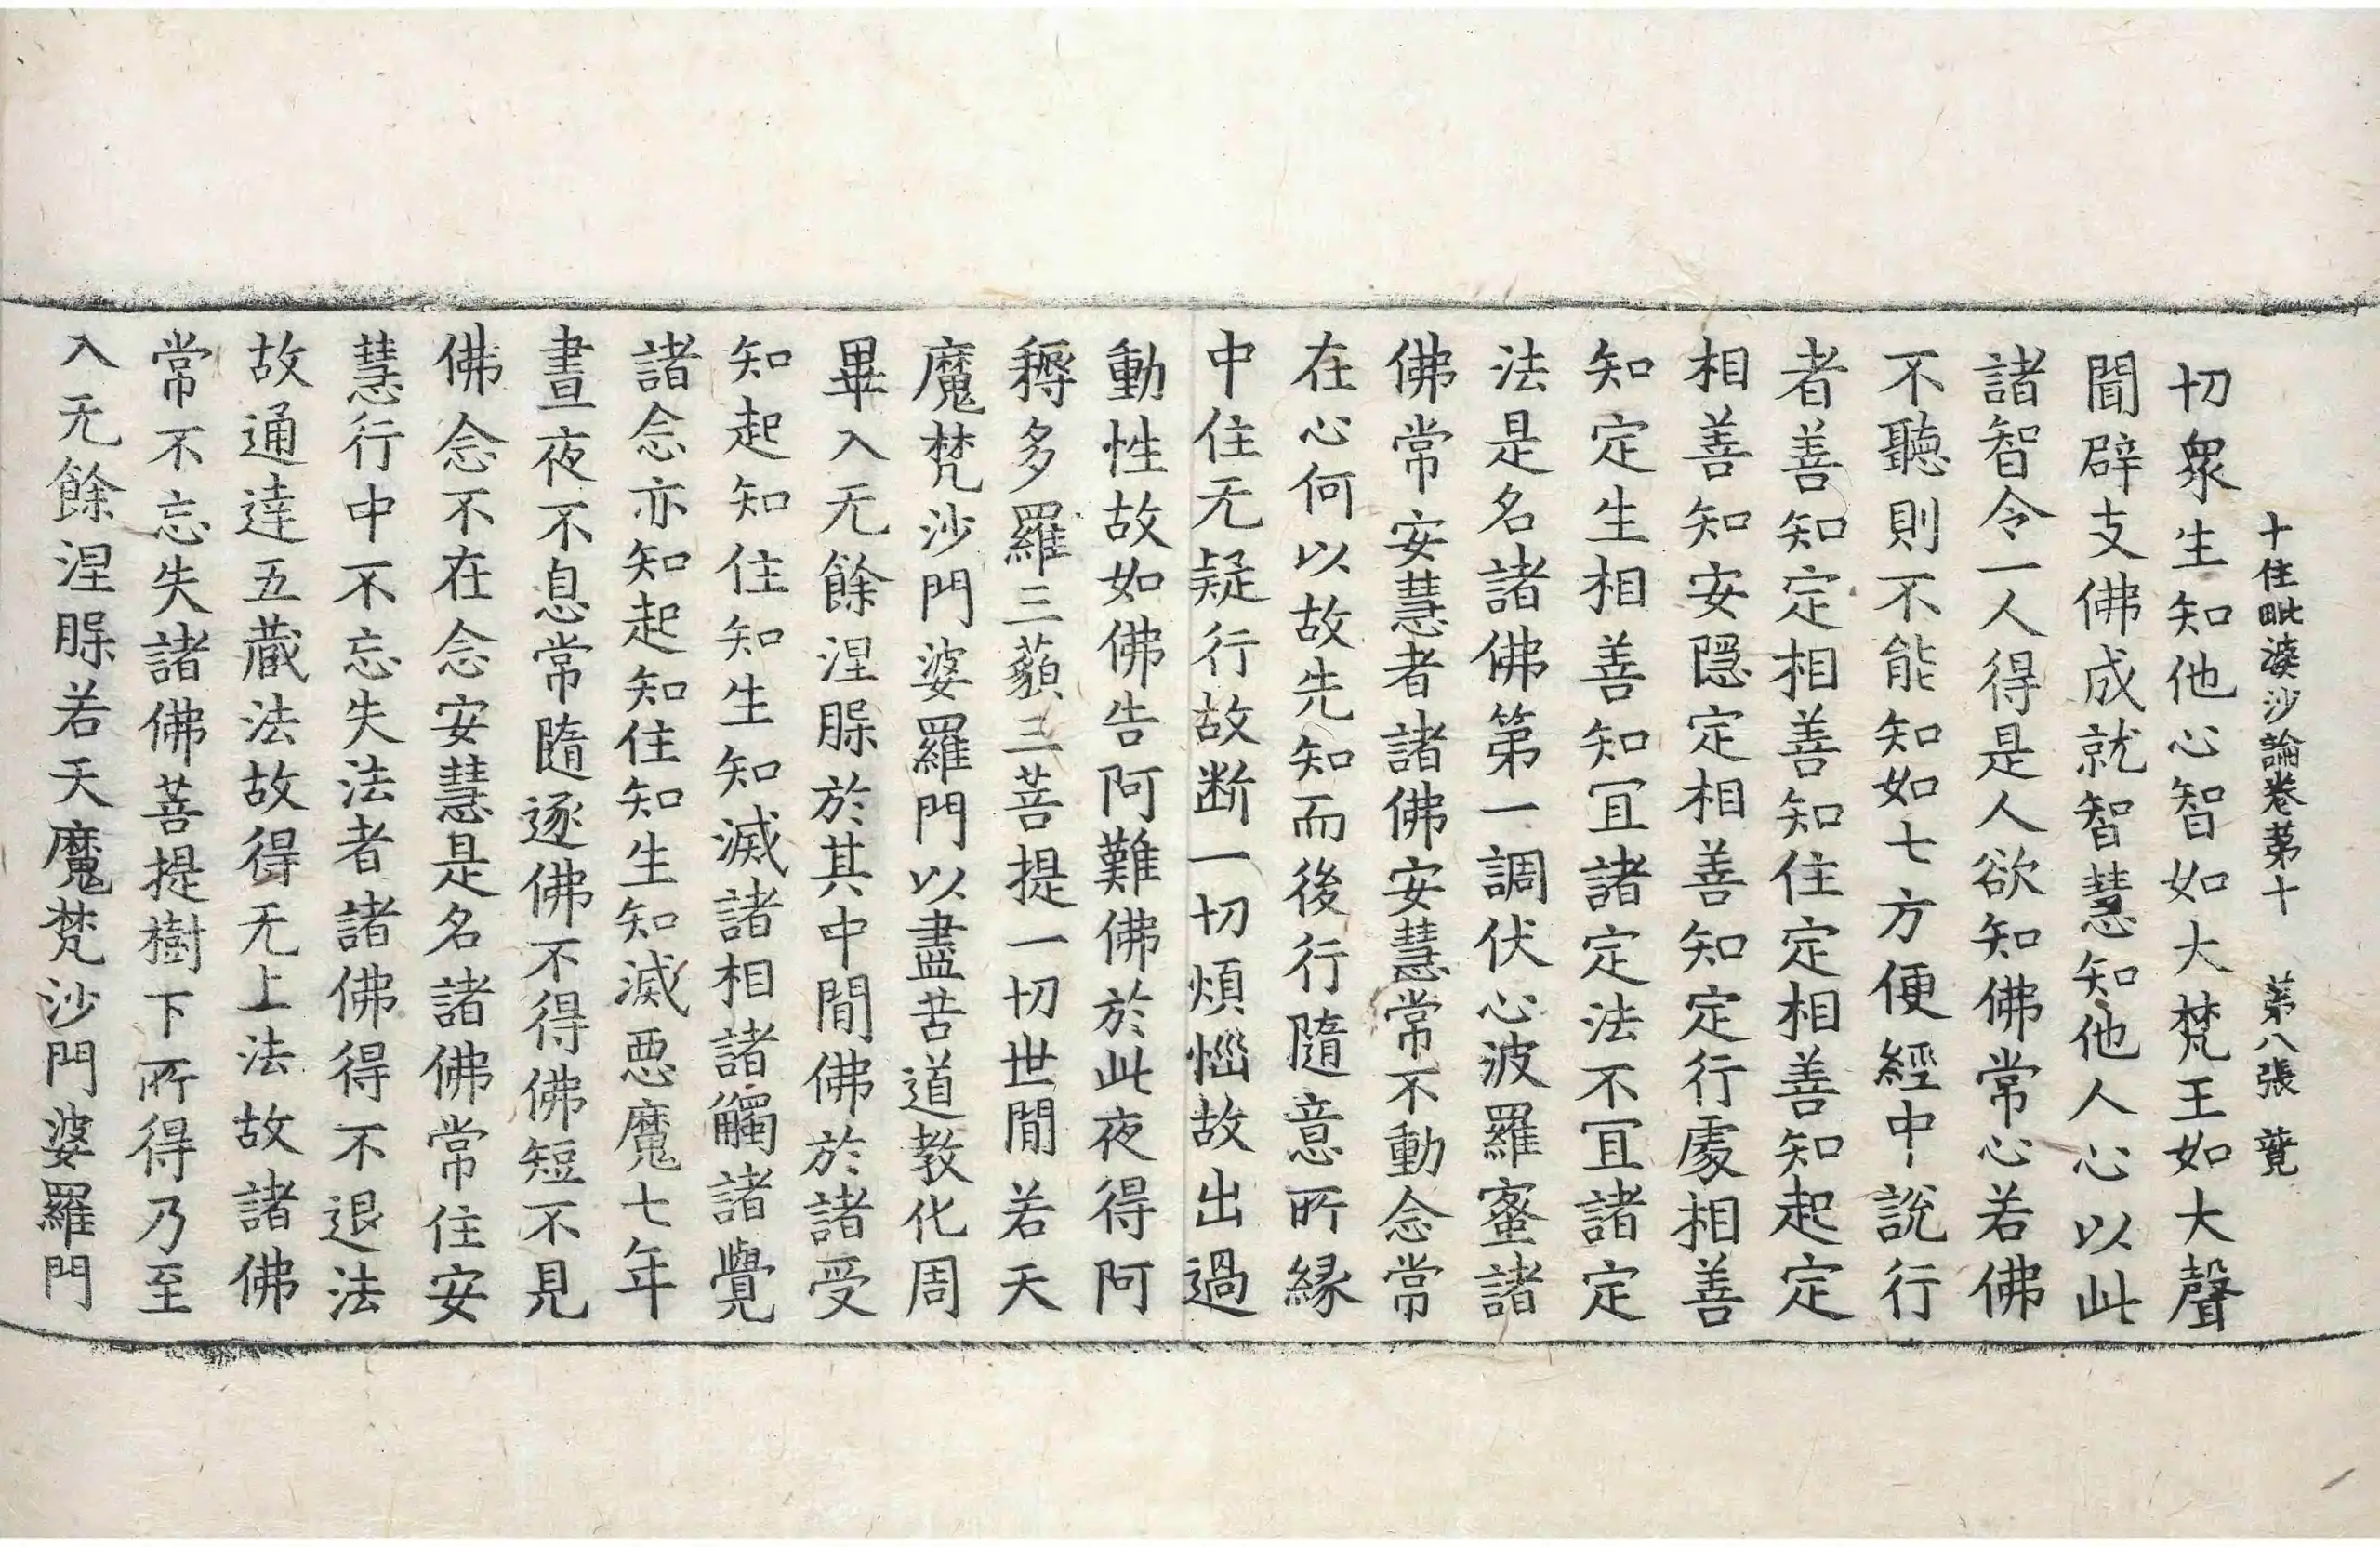 十住毗婆沙論卷第十　第八張　薲
切衆生知他心智如大梵王如大聲
聞辟支佛成就智慧知他人心以此
諸智令一人得是人欲知佛常心若佛
不聽則不能知如七方便經中說行
者善知定相善知住定相善知起定
相善知安隱定相善知定行處相善
知定生相善知冝諸定法不冝諸定
法是名諸佛第一調伏心波羅蜜諸
佛常安慧者諸佛安慧常不動念常
在心何以故先知而後行隨意所緣
中住无疑行故断一切煩惱故出過
動性故如佛告阿難佛於此夜得阿
耨多羅三藐三菩提一切世間若天
魔梵沙門婆羅門以盡苦道教化周
畢入无餘涅槃於其中間佛於諸受
知起知住知生知滅諸相諸觸諸覺
諸念亦知起知住知生知滅惡魔七年
晝夜不息常隨逐佛不得佛短不見
佛念不在念安慧是名諸佛常住安
慧行中不忘失法者諸佛得不退法
故通達五藏法故得无上法故諸佛
常不忘失諸佛菩提樹下所得乃至
入无餘涅槃若天魔梵沙門婆羅門